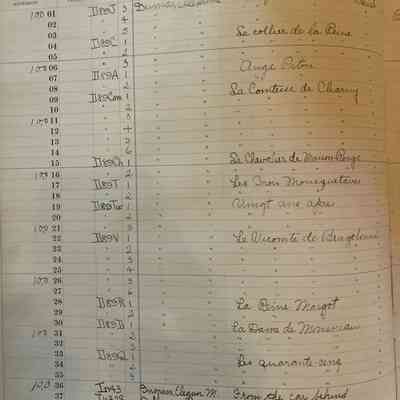 100 01 D89J 3 Dumas, Alexandre
02 4
03 5 Le collier de la Reine
04 D89C 1
05 2
100 06 Ange Pitou
07 D89A 1
08 2 La Comtesse de Charny
09 D89Com 1
10 2
100 11 3
12 4
13
14 6
15 D89Ch 1 Le Chevalier de Maison-Rouge
100 16 2
17 D89T 1 Les Trois Mousquetaires
18 2
19 D89Tw 1 Vingt ans après
20 2
100 21 3
22 D89V 1 Le Vicomte de Bragelonne
23 2
24 3
25 4
100 26 5
27 6
28 D89R 1 La Reine Margot
29 2
30 D89D 1 La Dame de Monsoreau
100 31 2
32 3
33 D89Q 1
34 2 Les quarante-cinq
35 3
100 36 In43 M. From the car behind
37